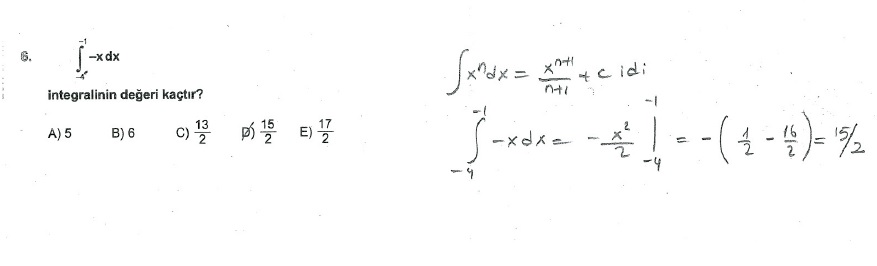 6. ∫_{-4}^{-1} -x dx
integralinin değeri kaçtır?
A) 5 B) 6 C) 13/2 D) 15/2 E) 17/2
∫xⁿdx = xⁿ⁺¹/n+1 + c idi
∫_{-4}^{-1} -xdx = -x²/2 |_{-4}^{-1} = -(1/2 - 16/2) = 15/2